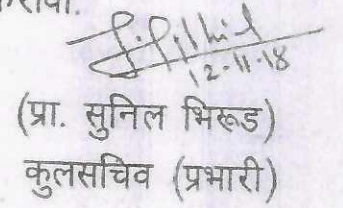 करावी.
12-11-18
(प्रा. सुनिल भिरूड)
कुलसचिव (प्रभारी)